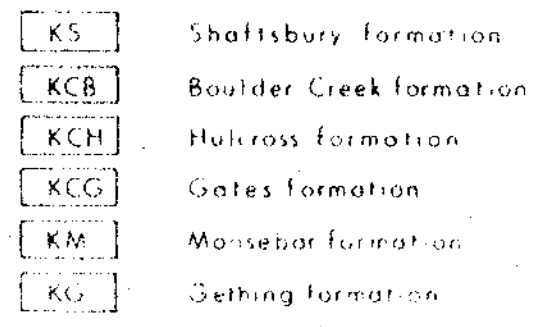 KS Shaftsbury formation
KCB Boulder Creek formation
KCH Hulcross formation
KCG Gates formation
KM Moosebar formation
KG Gething formation